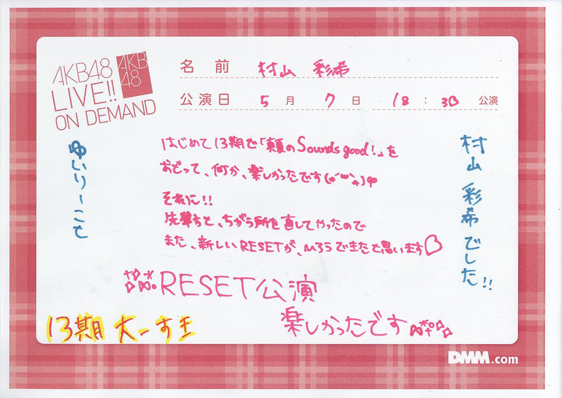 AKB48
LIVE!!
ON DEMAND
AKB
48
名前 村山 彩希
公演日 5月7日 18:30 公演
はじめて13期で「頼のSounds good!」を
おどって、何か、楽しかったです
それに!!
先輩方と、ちがう所を直してやったので
また、新しいRESETが、みうできたと思います♡
RESET公演
楽しかったです
13期 大ーすき
ゆいりーこと
村山彩希でした!!
DMM.com